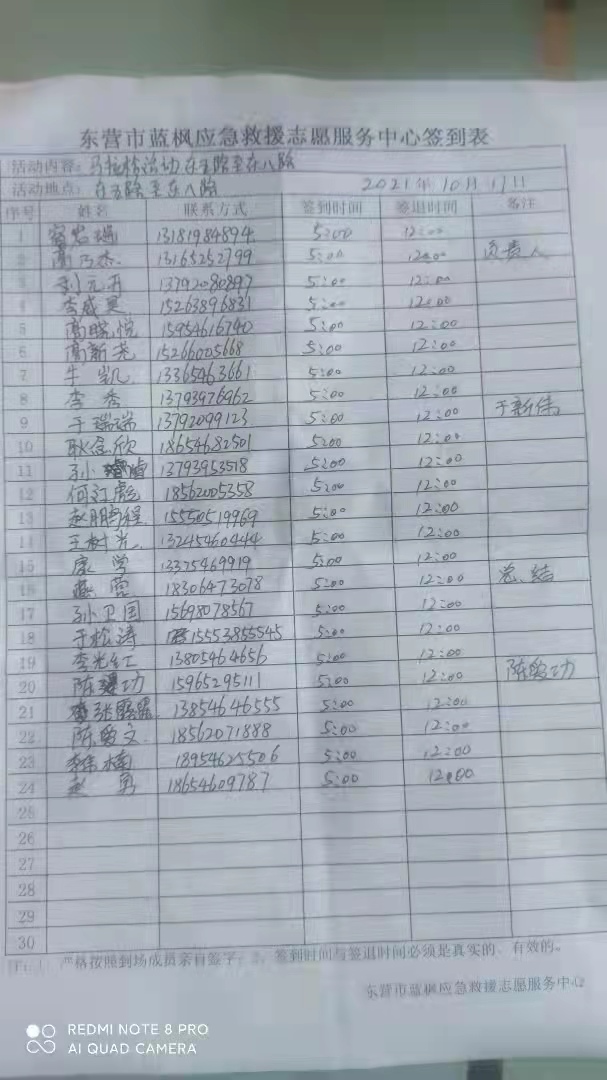 东营市蓝枫应急救援志愿服务中心签到表
活动内容: 马拉松活动,东五路至东八路
活动地点: 东五路至东八路 2021年10月17日
序号 姓名 联系方式 签到时间 签退时间 备注
1 13181984894 5:00 12:00
2 高乃杰 13165252799 5:00 12:00 负责人
3 刘元开 13792080897 5:00 12:00
4 李威昊 15263896831 5:00 12:00
5 高晓悦 15954616740 5:00 12:00
6 高新尧 15266005668 5:00 12:00
7 牛凯 13365463661 5:00 12:00
8 李秀 13793976962 5:00 12:00
9 于瑞瑞 13792099123 5:00 12:00 于新伟
10 耿念欣 18654682501 5:00 12:00
11 孙 13793953518 5:00 12:00
12 何江彪 18562005358 5:00 12:00
13 赵鹏程 15550519969 5:00 12:00
14 王树光 13245460444 5:00 12:00
15 康莹 13375469919 5:00 12:00
16 燕霞 18306473078 5:00 12:00 总结
17 孙卫国 15698078567 5:00 12:00
18 于松涛 15553855545 5:00 12:00
19 李光红 13805464656 5:00 12:00
20 陈建功 15965295111 5:00 12:00 陈敏功
21 张露露 13854646555 5:00 12:00
22 陈敏文 18562071888 5:00 12:00
23 李楠 18954625506 5:00 12:00
24 赵勇 18654609787 5:00 12:00
25
26
27
28
29
30
注:1、严格按照到场成员亲自签字;2、签到时间与签退时间必须是真实的、有效的。
东营市蓝枫应急救援志愿服务中心
REDMI NOTE 8 PRO
AI QUAD CAMERA